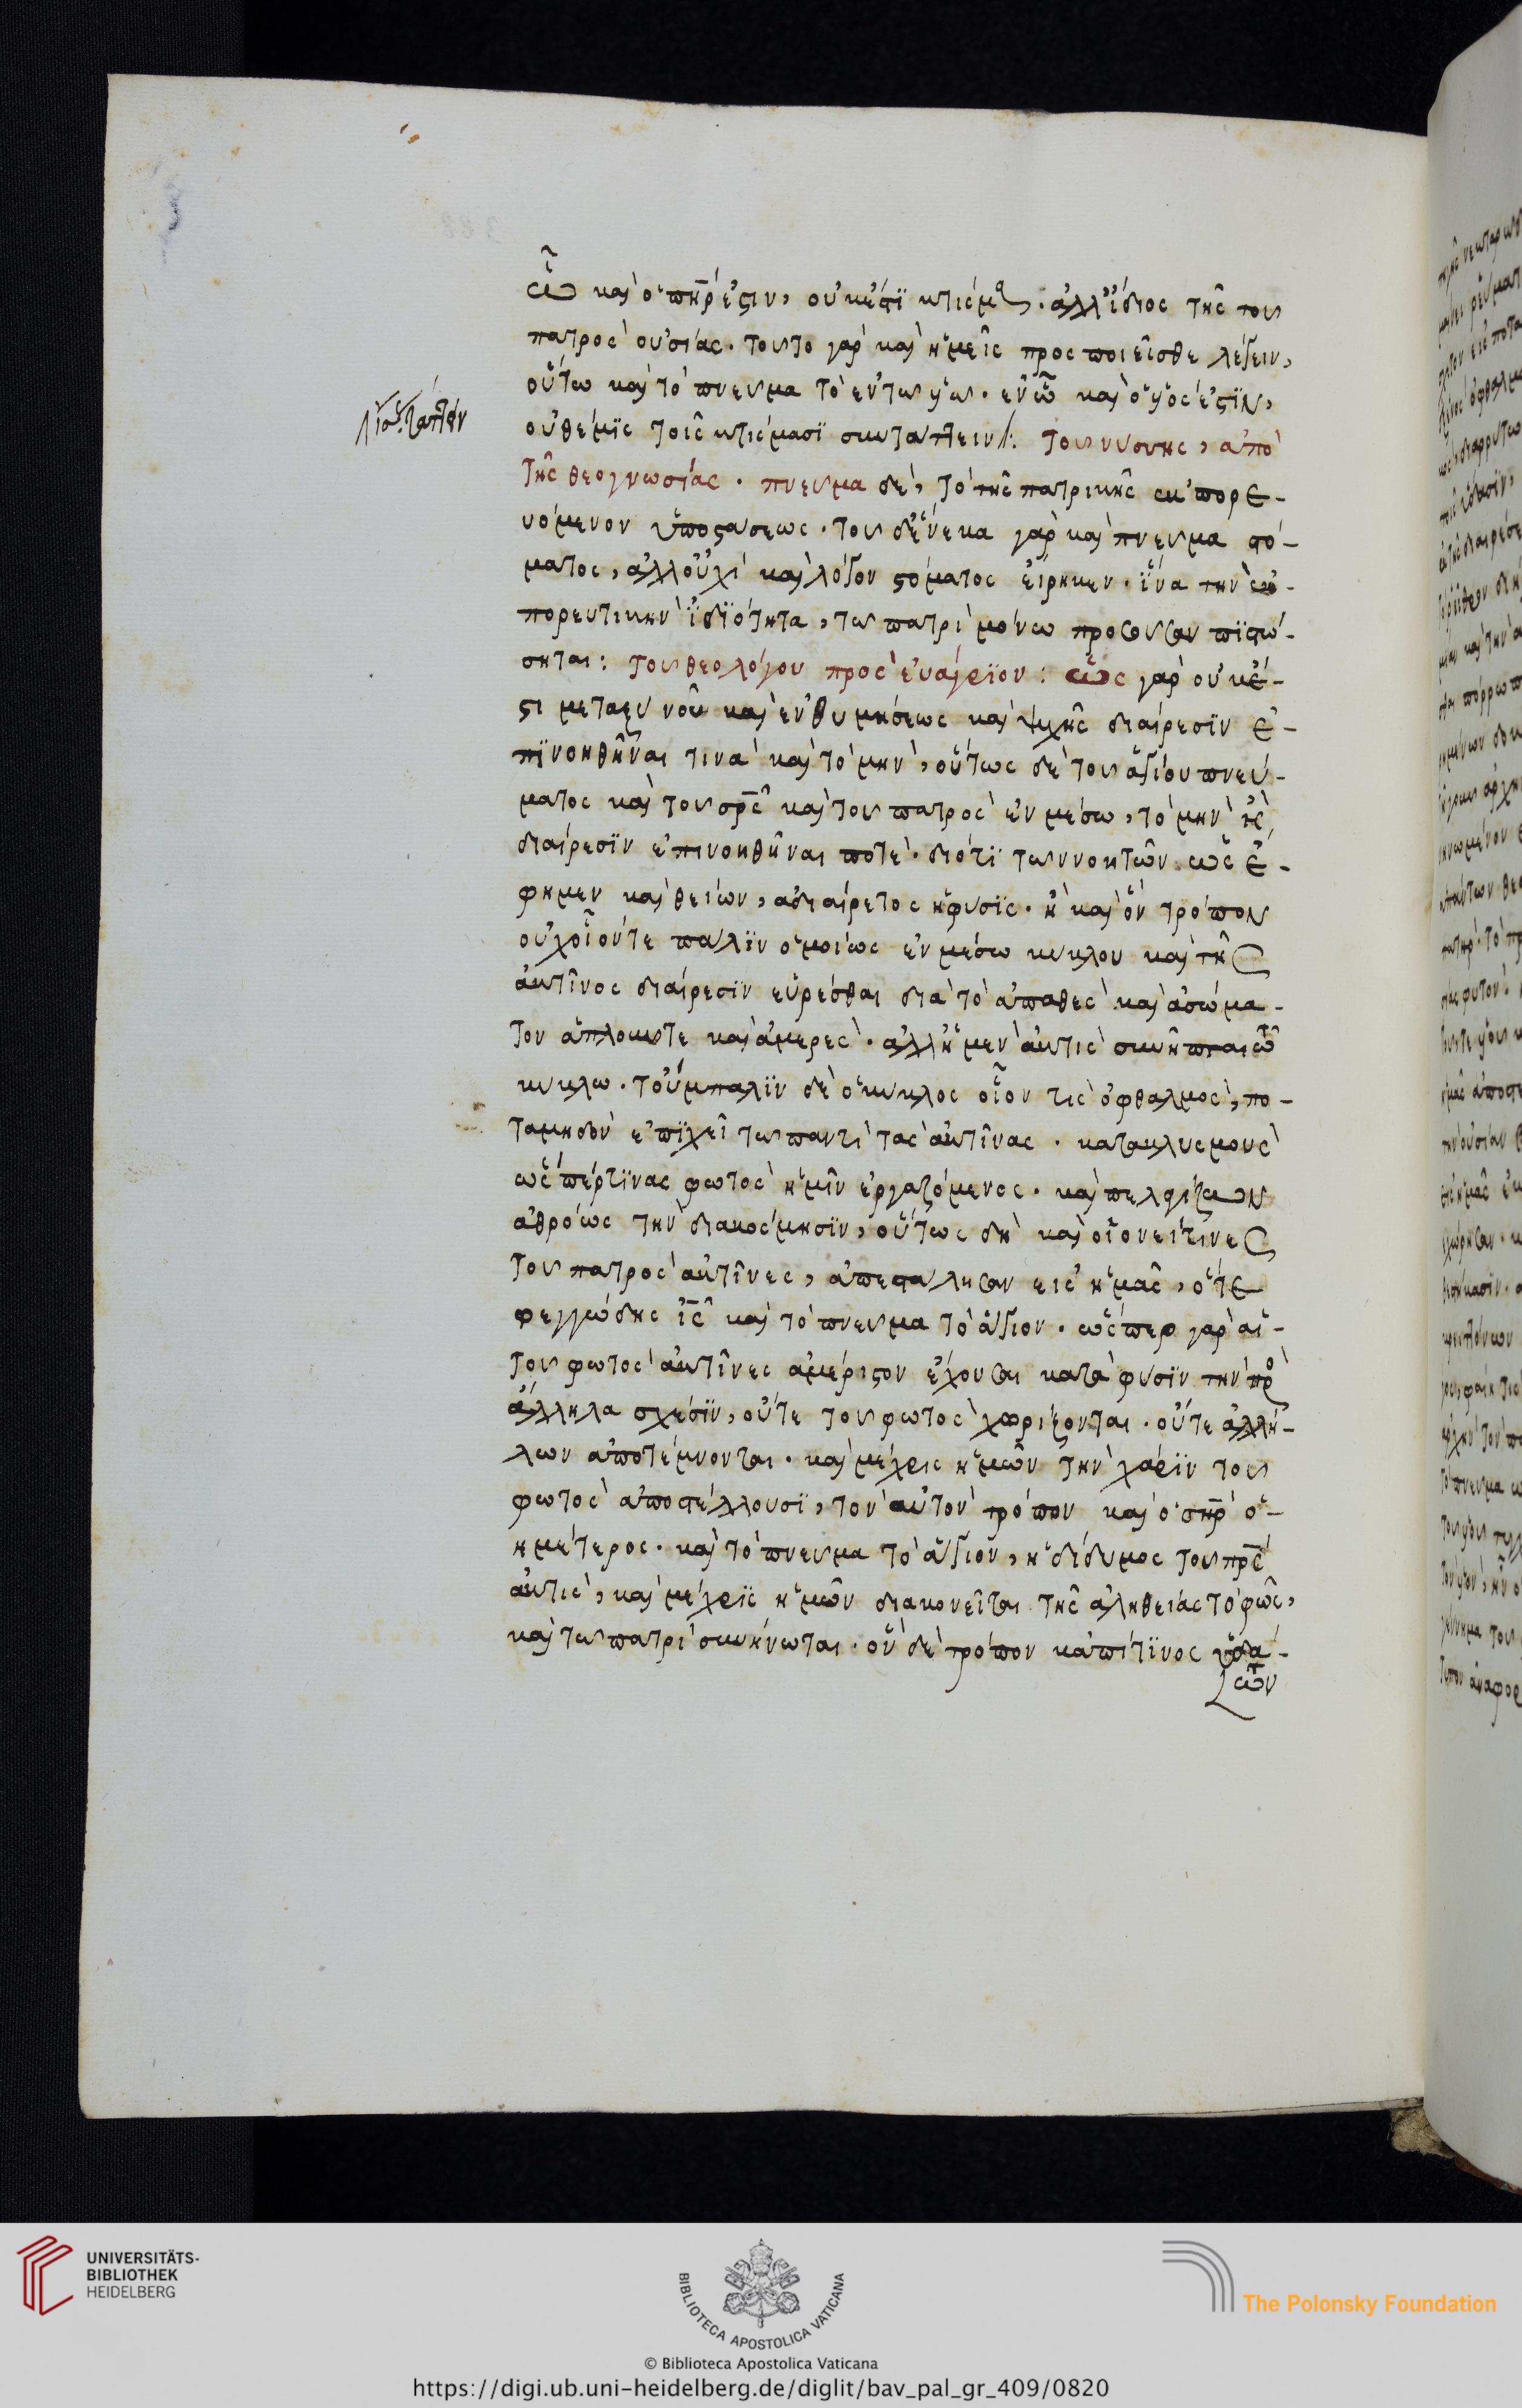 ᾧ καὶ ὁ πηρ ἐστιν, οὐκ ἔστι κτίσμα. ἀλλ' ἴδιος τῆς τοῦ
πατρὸς οὐσίας. τοῦτο γὰρ καὶ ἡμεῖς προσποιεῖσθε λέγειν,
οὕτω καὶ τὸ πνεῦμα τὸ ἐν τῷ υἱῷ. ἐν ᾧ καὶ ὁ υἱός ἐστιν,
οὐ θέμις τοῖς κτίσμασι συντάττειν: τοῦ νύσσης, ἀπὸ
τῆς θεογνωσίας. πνεῦμα δὲ, τὸ τῆς πατρικῆς ἐκπορε-
υόμενον ὑποστάσεως. τοῦδ' ἕνεκα γὰρ καὶ πνεῦμα στό-
ματος, ἀλλ' οὐχὶ καὶ λόγον στόματος εἴρηκεν. ἵνα τὴν ἐκ-
πορευτικὴν ἰδιότητα, τῷ πατρὶ μόνω προσοῦσαν πιστώ-
σηται: τοῦ θεολόγου πρὸς εὐάγριον: ὡς γὰρ οὐκ ἔ-
στι μεταξὺ νοῦ καὶ ἐνθυμήσεως καὶ ψυχῆς διαίρεσιν ἐ-
πινοηθῆναι τινὰ καὶ τομὴν, οὕτως δὲ τοῦ ἁγίου πνεύ-
ματος καὶ τοῦ σρς καὶ τοῦ πατρὸς ἐν μέσω, τομὴν ἢ
διαίρεσιν ἐπινοηθῆναι ποτὲ. διότι τῶν νοητῶν ὡς ἔ-
φημεν καὶ θείων, ἀδιαίρετος ἡ φύσις. ἢ καὶ ὃν τρόπον
οὐχ οἷόν τε πάλιν ὁμοίως ἐν μέσω κύκλου καὶ τῆς
ἀκτῖνος διαίρεσιν εὑρέσθαι διὰ τὸ ἀπαθὲς καὶ ἀσώμα-
τον ἁπλοῦν τε καὶ ἀμερὲς. ἀλλ' ἡ μὲν ἀκτὶς συνῆπται τῶ
κύκλω. τοὔμπαλιν δὲ ὁ κύκλος οἷόν τις ὀφθαλμὸς, πο-
ταμηδὸν ἐπιχεῖ τῷ παντὶ τὰς ἀκτῖνας. κατακλυσμοὺς
ὥσπερ τινας φωτὸς ἡμῖν ἐργαζόμενος. καὶ πελαγίζων
ἀθρόως τὴν διακόσμησιν, οὕτως δὴ καὶ οἱονεί τινες
τοῦ πατρὸς ἀκτῖνες, ἀπεστάλησαν εἰς ἡμᾶς, ὅτε
φεγγώδης ις καὶ τὸ πνεῦμα τὸ ἅγιον. ὥσπερ γὰρ αἱ
τοῦ φωτὸς ἀκτῖνες ἀμέριστον ἔχουσαι κατὰ φύσιν τὴν πρὸς
ἄλληλα σχέσιν, οὔτε τοῦ φωτὸς χωρίζονται. οὔτε ἀλλή-
λων ἀποτέμνονται. καὶ μέχρις ἡμῶν τὴν χάριν τοῦ
φωτὸς ἀποστέλλουσι, τὸν αὐτὸν τρόπον καὶ ὁ σηρ ὁ
ἡμέτερος. καὶ τὸ πνεῦμα τὸ ἅγιον, ἡ δίδυμος τοῦ πρς
ἀκτὶς, καὶ μέχρις ἡμῶν διακονεῖται τῆς ἀληθείας τὸ φῶς,
καὶ τῷ πατρὶ συνήνωται. ὃν δὲ τρόπον κἀπί τινος ὑδά-
των
UNIVERSITÄTS-
BIBLIOTHEK
HEIDELBERG
BIBLIOTECA APOSTOLICA VATICANA
The Polonsky Foundation
© Biblioteca Apostolica Vaticana
https://digi.ub.uni-heidelberg.de/diglit/bav_pal_gr_409/0820